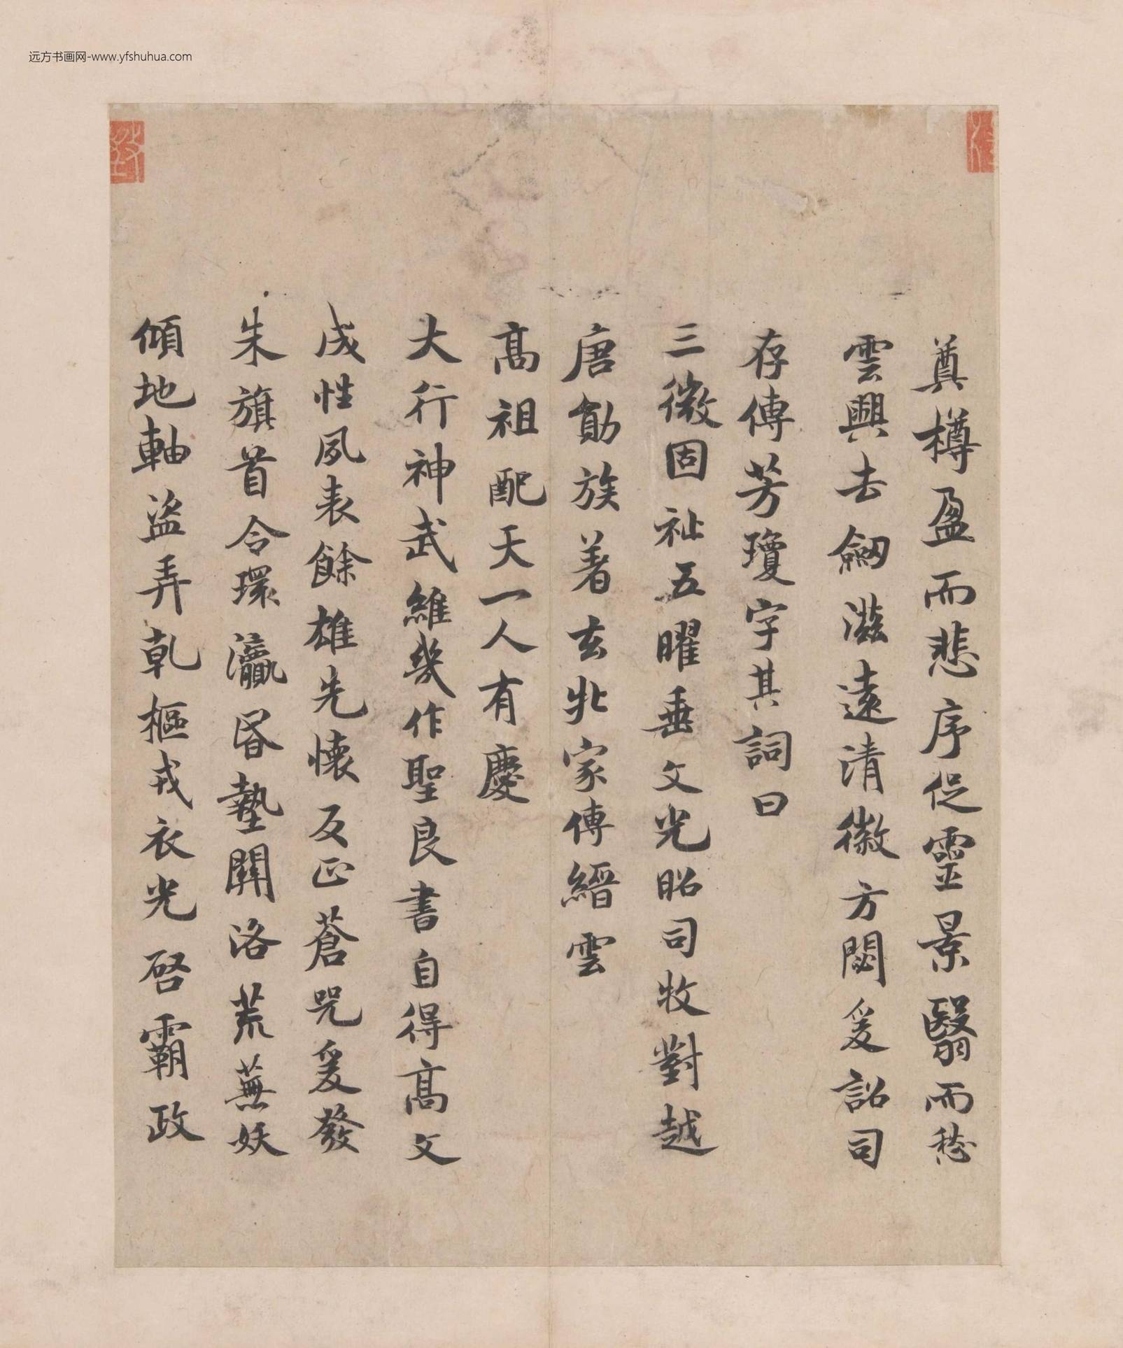 远方书画网-www.yfshuhua.com
奠樽盈而悲序促靈景翳而愁
雲興去劒滋遠清徽方閟爰詔司
存傳芳瓊字其詞曰
三微固祉五曜垂文光昭司牧對越
唐勛族著玄牝家傳縉雲
高祖配天一人有慶
大行神武維幾作聖良書自得高文
成性夙表餘雄先懷反正蒼咒爰發
朱旗首令環瀛昏墊關洛荒蕪妖
傾地軸盜弄乾樞戎衣光啓霸政